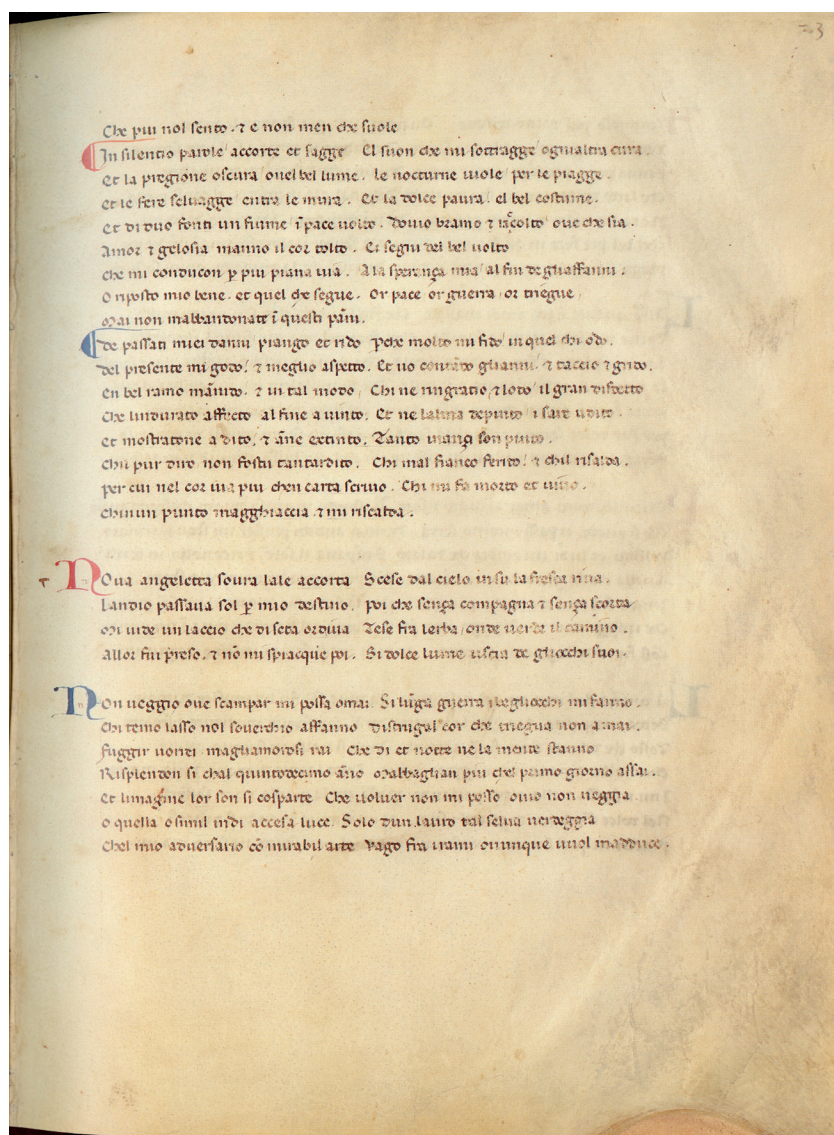 Che piu nol sento. ⁊ e non men che suole
In silentio parole accorte et sagge El suon che mi sottragge ogni altra cura.
Et la pregione oscura ouel bel lume. le nocturne uiole per le piagge.
Et le fere seluagge entra le mura. Et la dolce paura. el bel costume.
Et di duo fonti un fiume ī pace uolto. Douio bramo ⁊ racolto oue che sia.
Amor ⁊ gelosia manno il cor tolto. Et segni del bel uolto
che mi conducon p̱ piu piana uia. A la sperança mia al fin de gliaffanni.
O riposto mio bene. et quel che segue. Or pace or guerra or triegue
Mai non mabbandonate ī questi pāni.
De passati miei danni piango et rido p̱che molto mi fido in quel chi odo.
Del presente mi godo. ⁊ meglio aspetto. Et uo contādo glianni. ⁊ taccio ⁊ grido.
En bel ramo mānido. ⁊ in tal modo Chi ne ringratio ⁊ lodo il gran disdetto
Che lindurato affecto al fine a uinto. Et ne lalma depinto i sare udito.
Et mostratone a dito. ⁊ āne extinto. Tanto inançi son pinto.
Chil pur diro non fostu tantardito. Chi mal fianco ferito. ⁊ chil risalda.
per cui nel cor uia piu chen carta scriuo. Chi mi fa morto et uiuo.
Chinun punto magghiaccia ⁊ mi riscalda.
Noua angeletta soura lale accorta Scese dal cielo in su la fresca riua.
Landio passaua sol p̱ mio destino. poi che sença compagna ⁊ sença scorta
Mi uide un laccio che di seta ordiua Tese fra lerba onde uerde il camino.
Allor fui preso. ⁊ nō mi spiacque poi. Si dolce lume uscia de gliocchi suoi.
Non ueggio oue scampar mi possa omai. Si lūga guerra i begliocchi mi fanno.
Chi temo lasso nol souerchio affanno distrugal cor che triegua non a mai.
Fuggir uorrei magliamorosi rai Che di et notte ne la mente stanno
Risplendon si chal quintodecimo āno Mabbaglian piu chel primo giorno assai.
Et limagine lor son si cosparte Che uoluer non mi posso ouio non ueggia
O quella o simil indi accesa luce. Solo dun lauro tal selua uerdeggia
Chel mio aduersario cō mirabil arte Vago fra i rami ouunque uuol madduce.